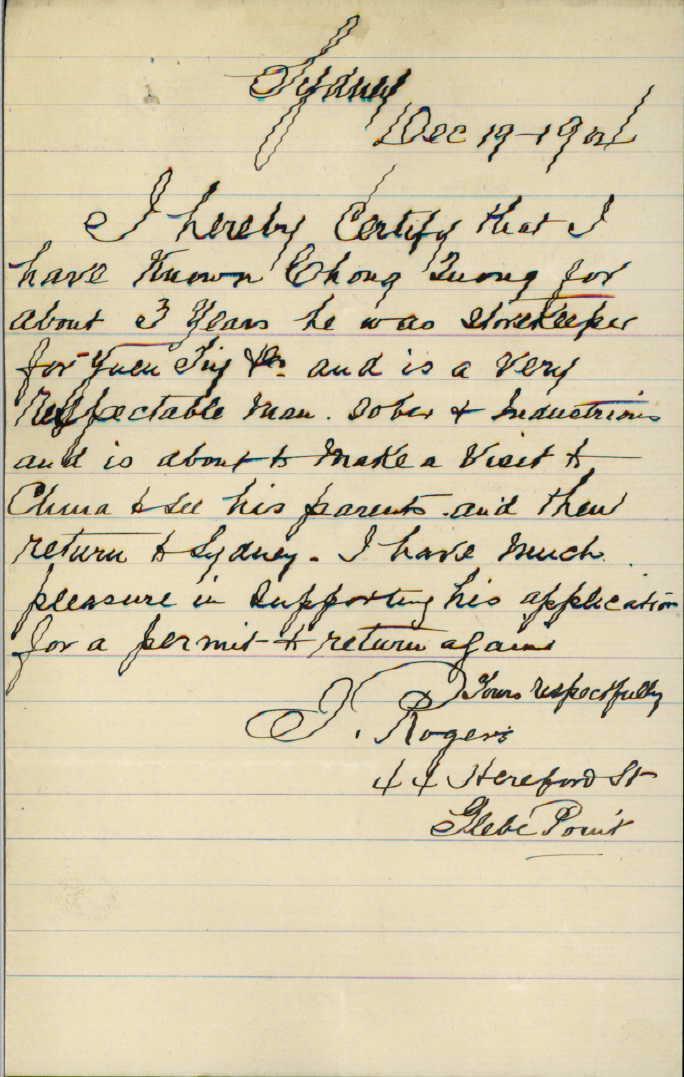 Sydney
Dec 19-190
I hereby Certify that I
have Known Chong Quong for
about 3 Years he was Storekeeper
for Yuen Tiy & Co. and is a very
Respectable Man. Sober & Industrious
and is about to Make a Visit to
China to See his parents. and then
return to Sydney. I have Much
pleasure in Supporting his application
for a permit to return again
Yours respectfully
J. Rogers
44 Hereford St
Glebe Point